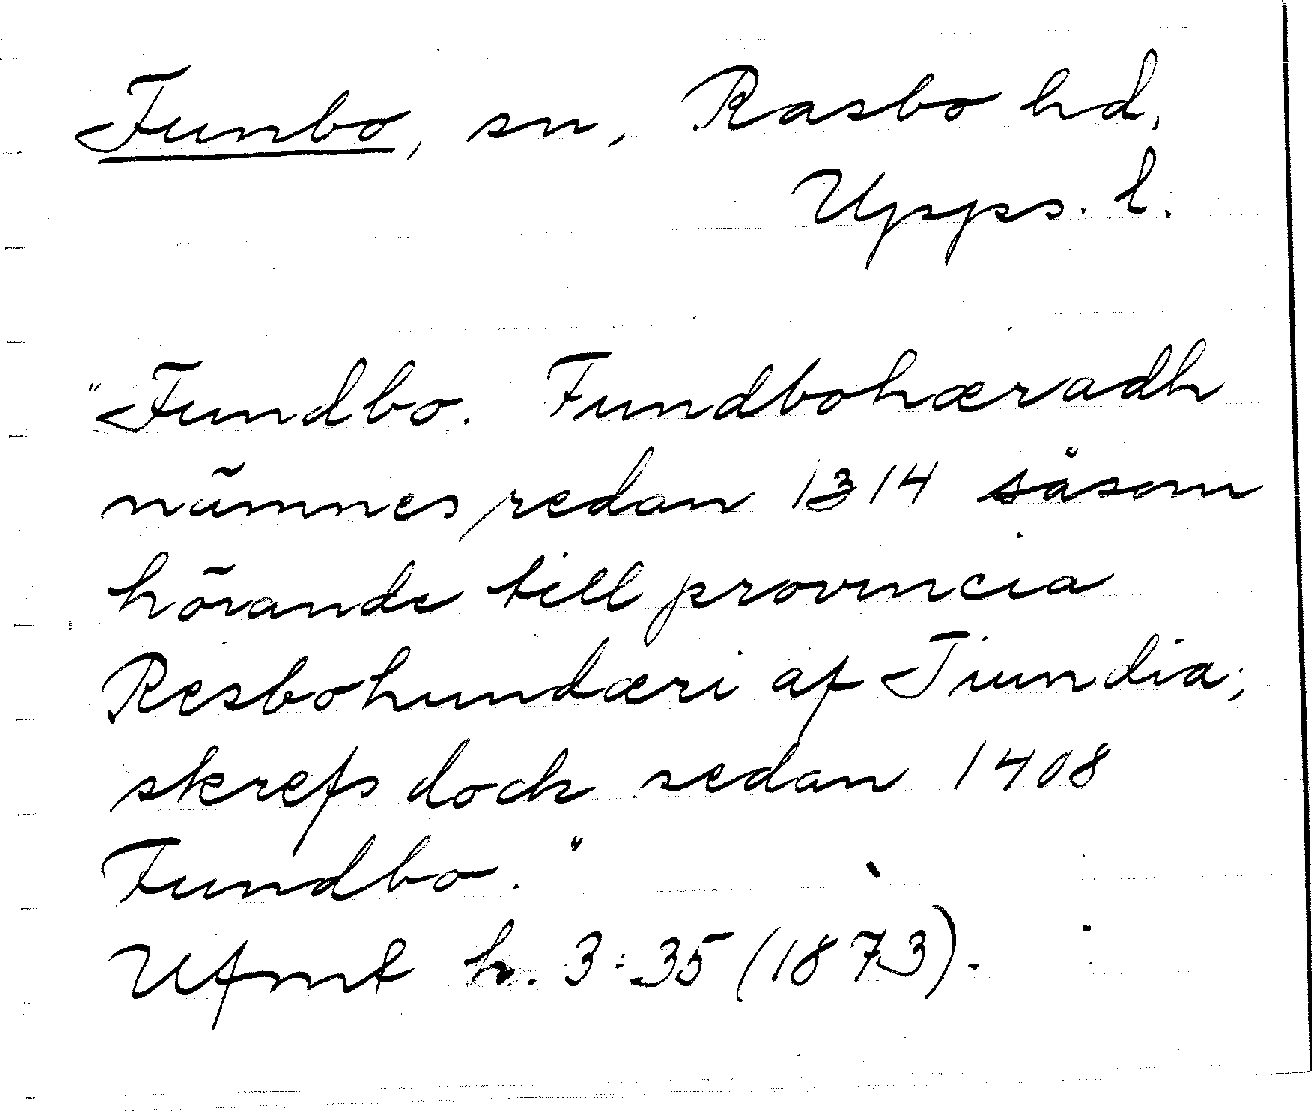 Funbo, sn, Rasbo hd,
Upps. l.
"Fundbo. Fundbohæradh
nämnes redan 1314 såsom
hörande till provincia
Resbohundæri af Tiundia;
skrefs dock sedan 1408
Fundbo."
Ufmt h. 3:35 (1873).